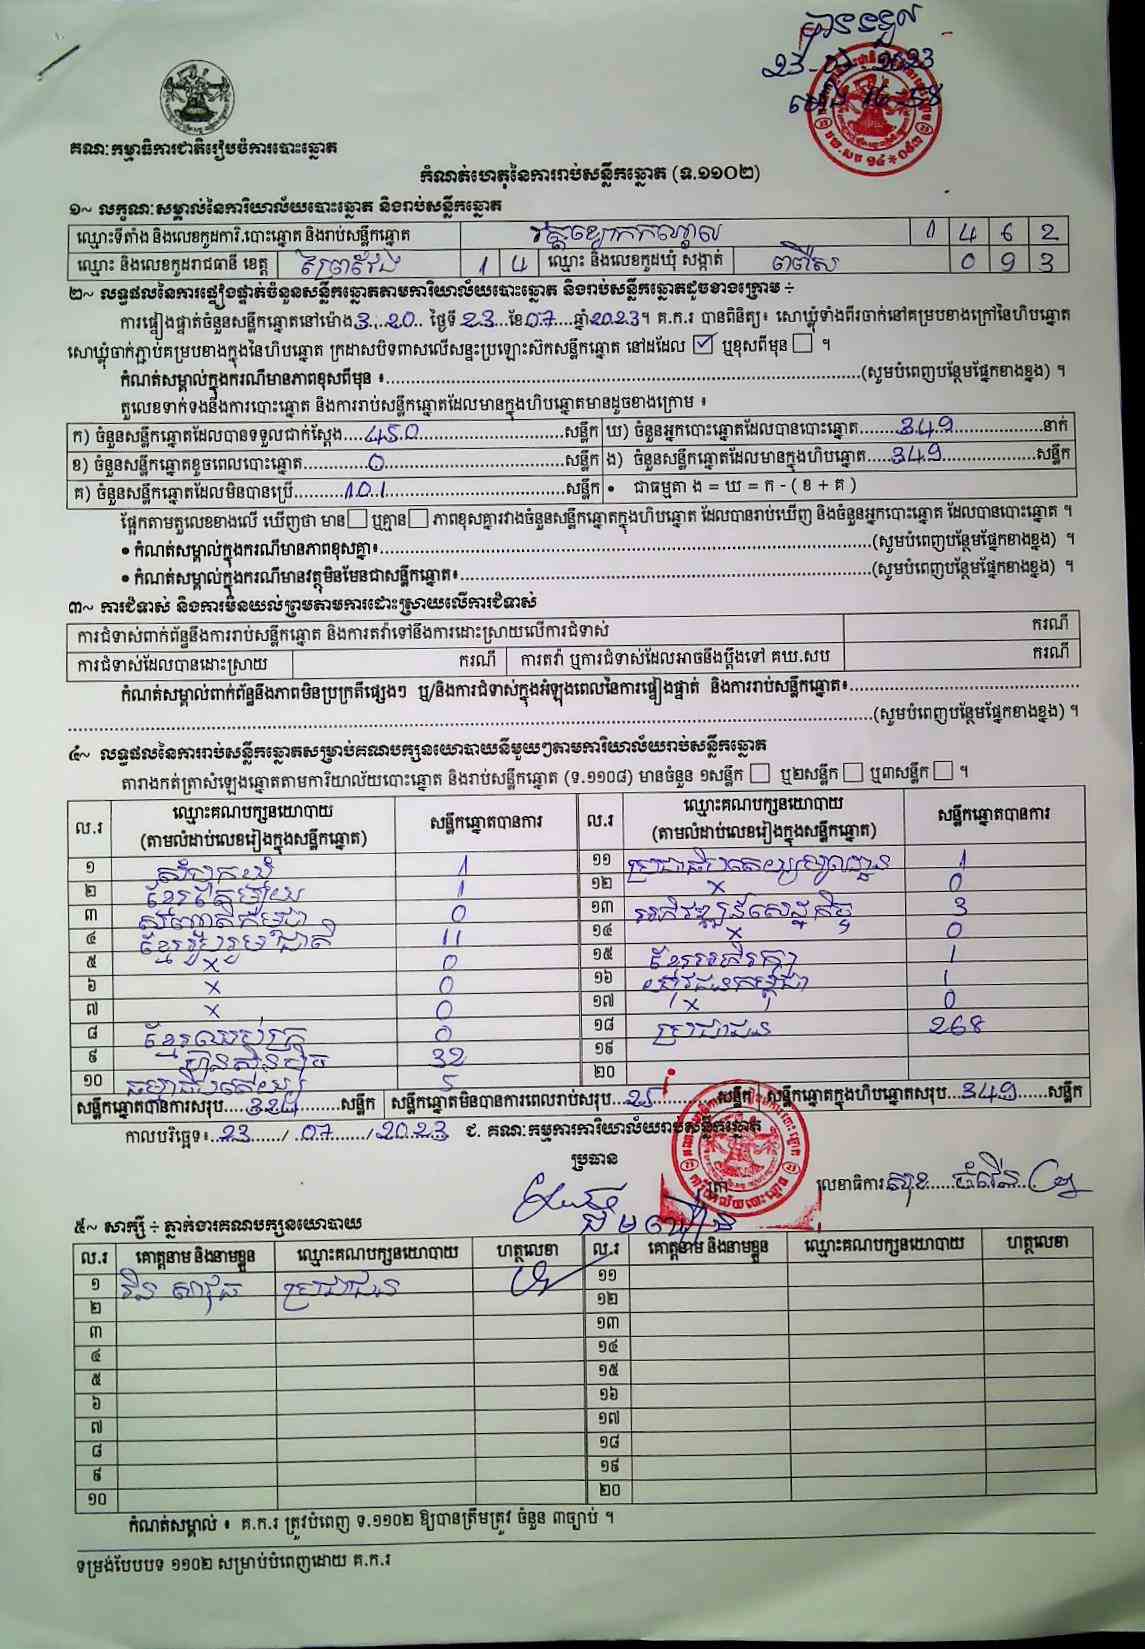 បានទទួល
គណៈកម្មាធិការជាតិរៀបចំការបោះឆ្នោត
កំណត់ហេតុនៃការរាប់សន្លឹកឆ្នោត (ទ.១១០២)
១~ លក្ខណៈសម្គាល់នៃការិយាល័យបោះឆ្នោត និងរាប់សន្លឹកឆ្នោត
ឈ្មោះទីតាំង និងលេខកូដការិ.បោះឆ្នោត និងរាប់សន្លឹកឆ្នោត 1 4 6 2
ឈ្មោះ និងលេខកូដរាជធានី ខេត្ត ព្រៃវែង 1 4 ឈ្មោះ និងលេខកូដឃុំ សង្កាត់ 0 9 3
២~ លទ្ធផលនៃការផ្ទៀងផ្ទាត់ចំនួនសន្លឹកឆ្នោតតាមការិយាល័យបោះឆ្នោត និងរាប់សន្លឹកឆ្នោតដូចខាងក្រោម ÷
ការផ្ទៀងផ្ទាត់ចំនួនសន្លឹកឆ្នោតនៅម៉ោង 3:20 ថ្ងៃទី 23 ខែ 07 ឆ្នាំ 2023។ គ.ក.រ បានពិនិត្យ៖ សោឃ្លុំទាំងពីរចាក់នៅគម្របខាងក្រៅនៃហិបឆ្នោត
សោឃ្លុំចាក់ភ្ជាប់គម្របខាងក្នុងនៃហិបឆ្នោត ក្រដាសបិទពាសលើសន្ទះប្រឡោះស៊កសន្លឹកឆ្នោត នៅដដែល ☑ ឬខុសពីមុន ☐ ។
កំណត់សម្គាល់ក្នុងករណីមានភាពខុសពីមុន ៖ (សូមបំពេញបន្ថែមផ្នែកខាងខ្នង) ។
តួលេខទាក់ទងនឹងការបោះឆ្នោត និងការរាប់សន្លឹកឆ្នោតដែលមានក្នុងហិបឆ្នោតមានដូចខាងក្រោម ៖
ក) ចំនួនសន្លឹកឆ្នោតដែលបានទទួលជាក់ស្តែង 450 សន្លឹក ឃ) ចំនួនអ្នកបោះឆ្នោតដែលបានបោះឆ្នោត 349 នាក់
ខ) ចំនួនសន្លឹកឆ្នោតខូចពេលបោះឆ្នោត 0 សន្លឹក ង) ចំនួនសន្លឹកឆ្នោតដែលមានក្នុងហិបឆ្នោត 349 សន្លឹក
គ) ចំនួនសន្លឹកឆ្នោតដែលមិនបានប្រើ 101 សន្លឹក • ជាធម្មតា ង = ឃ = ក - ( ខ + គ )
ផ្អែកតាមតួលេខខាងលើ ឃើញថា មាន ☐ ឬគ្មាន ☐ ភាពខុសគ្នារវាងចំនួនសន្លឹកឆ្នោតក្នុងហិបឆ្នោត ដែលបានរាប់ឃើញ និងចំនួនអ្នកបោះឆ្នោត ដែលបានបោះឆ្នោត ។
• កំណត់សម្គាល់ក្នុងករណីមានភាពខុសគ្នា៖ (សូមបំពេញបន្ថែមផ្នែកខាងខ្នង) ។
• កំណត់សម្គាល់ក្នុងករណីមានវត្ថុមិនមែនជាសន្លឹកឆ្នោត៖ (សូមបំពេញបន្ថែមផ្នែកខាងខ្នង) ។
៣~ ការជំទាស់ និងការមិនយល់ព្រមតាមការដោះស្រាយលើការជំទាស់
ការជំទាស់ពាក់ព័ន្ធនឹងការរាប់សន្លឹកឆ្នោត និងការតវ៉ាទៅនឹងការដោះស្រាយលើការជំទាស់ ករណី
ការជំទាស់ដែលបានដោះស្រាយ ករណី ការតវ៉ា ឬការជំទាស់ដែលអាចនឹងប្តឹងទៅ គឃ.សប ករណី
កំណត់សម្គាល់ពាក់ព័ន្ធនឹងភាពមិនប្រក្រតីផ្សេងៗ ឬ/និងការជំទាស់ក្នុងអំឡុងពេលនៃការផ្ទៀងផ្ទាត់ និងការរាប់សន្លឹកឆ្នោត៖
(សូមបំពេញបន្ថែមផ្នែកខាងខ្នង) ។
៤~ លទ្ធផលនៃការរាប់សន្លឹកឆ្នោតសម្រាប់គណបក្សនយោបាយនីមួយៗតាមការិយាល័យរាប់សន្លឹកឆ្នោត
តារាងកត់ត្រាសំឡេងឆ្នោតតាមការិយាល័យបោះឆ្នោត និងរាប់សន្លឹកឆ្នោត (ទ.១១០៨) មានចំនួន ១សន្លឹក ☐ ឬ២សន្លឹក ☐ ឬ៣សន្លឹក ☐ ។
ល.រ ឈ្មោះគណបក្សនយោបាយ (តាមលំដាប់លេខរៀងក្នុងសន្លឹកឆ្នោត) សន្លឹកឆ្នោតបានការ ល.រ ឈ្មោះគណបក្សនយោបាយ (តាមលំដាប់លេខរៀងក្នុងសន្លឹកឆ្នោត) សន្លឹកឆ្នោតបានការ
១ 1 ១១ 1
២ 1 ១២ x 0
៣ 0 ១៣ 3
៤ ខ្មែររួបរួមជាតិ 11 ១៤ x 0
៥ x 0 ១៥ 1
៦ x 0 ១៦ 1
៧ x 0 ១៧ x 0
៨ ខ្មែរឈប់ក្រ 0 ១៨ ប្រជាជន 268
៩ ហ៊្វុនស៊ិនប៉ិច 32 ១៩
១០ ធម្មាធិបតេយ្យ 5 ២០
សន្លឹកឆ្នោតបានការសរុប 324 សន្លឹក សន្លឹកឆ្នោតមិនបានការពេលរាប់សរុប 25 សន្លឹក សន្លឹកឆ្នោតក្នុងហិបឆ្នោតសរុប 349 សន្លឹក
កាលបរិច្ឆេទ៖ 23 / 07 / 2023 ជ. គណៈកម្មការការិយាល័យរាប់សន្លឹកឆ្នោត
ប្រធាន
លេខាធិការ
៥~ សាក្សី ÷ ភ្នាក់ងារគណបក្សនយោបាយ
ល.រ គោត្តនាម និងនាមខ្លួន ឈ្មោះគណបក្សនយោបាយ ហត្ថលេខា ល.រ គោត្តនាម និងនាមខ្លួន ឈ្មោះគណបក្សនយោបាយ ហត្ថលេខា
១ ប្រជាជន ១១
២ ១២
៣ ១៣
៤ ១៤
៥ ១៥
៦ ១៦
៧ ១៧
៨ ១៨
៩ ១៩
១០ ២០
កំណត់សម្គាល់ ៖ គ.ក.រ ត្រូវបំពេញ ទ.១១០២ ឱ្យបានត្រឹមត្រូវ ចំនួន ៣ច្បាប់ ។
ទម្រង់បែបបទ ១១០២ សម្រាប់បំពេញដោយ គ.ក.រ